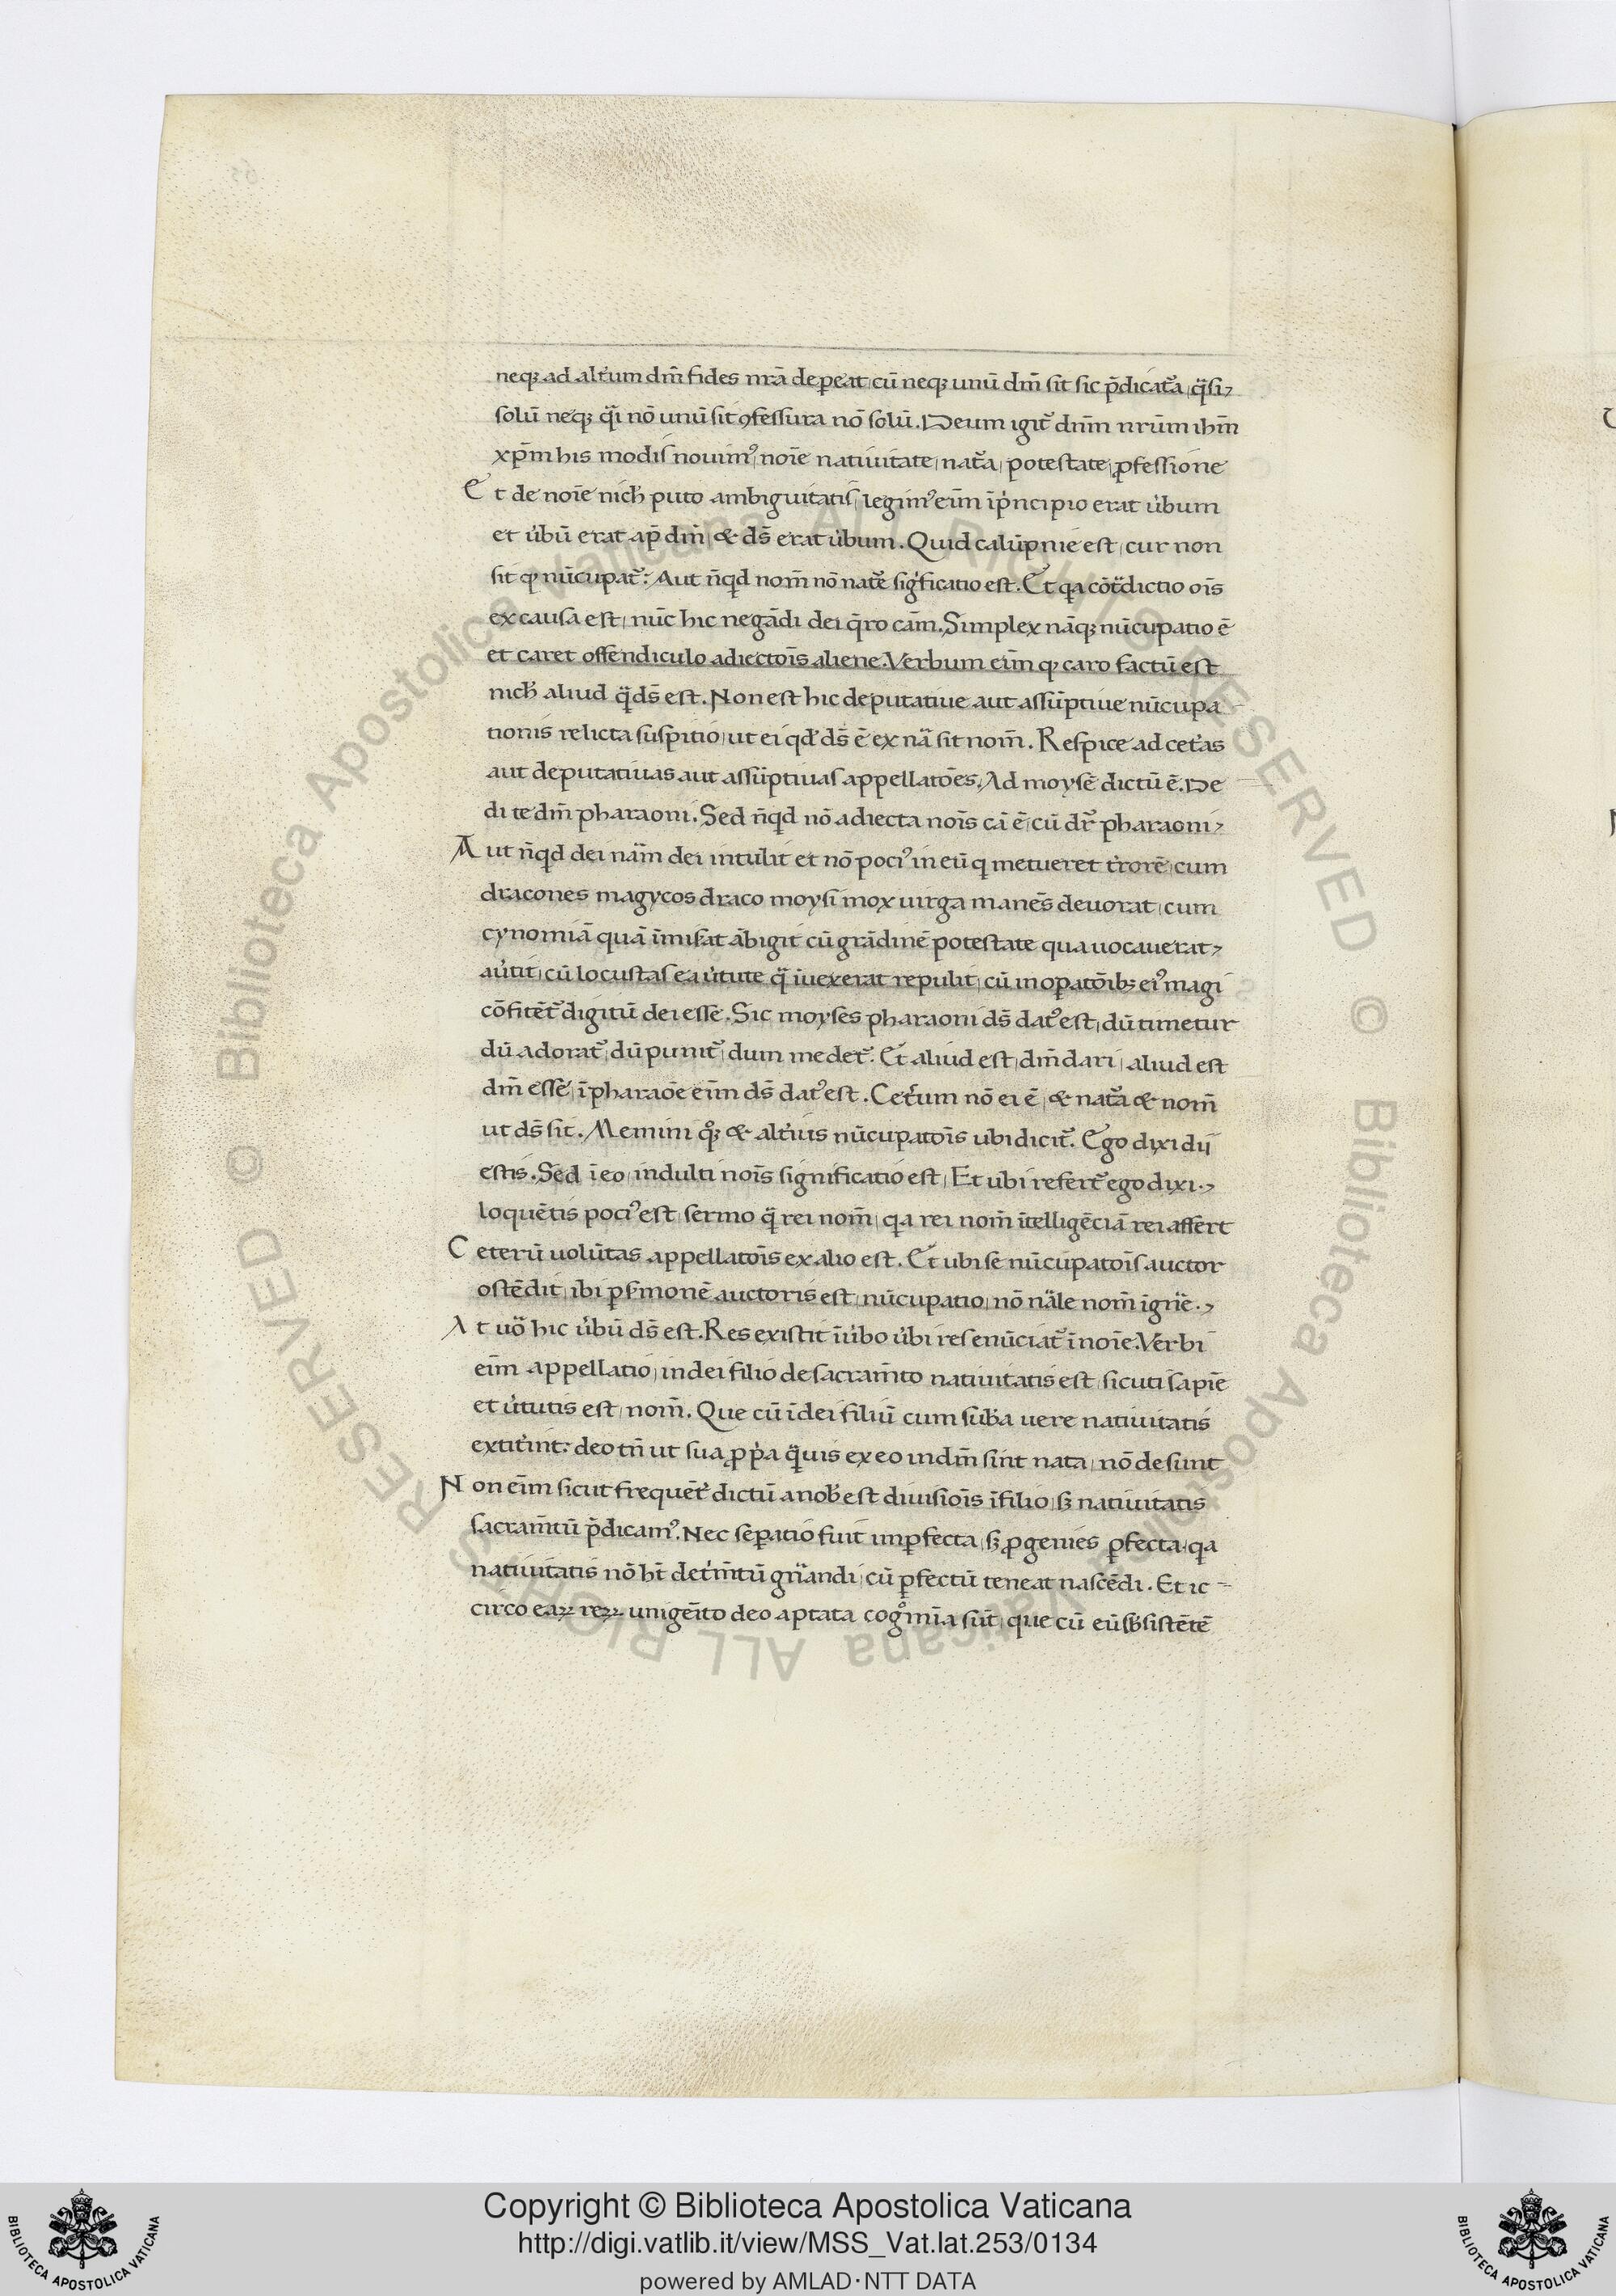 neqꝫ ad alt̾um dm̄ fides nr̄a depereat, cū neqꝫ unū dm̄ sit sic p̄dicatᷓa, qᷓsi,
solū neqꝫ qᷓi nō unū sit ꝯfessura nō solū. Deum igit᷑ dnm̄ nrūm ihm̄
xp̄m his modis nouimꝰ, noīe natiuitate, natᷓa, potestate, ꝓfessione
Et de noīe nich̄ puto ambiguitatis, legimꝰ eim̄ ī pͥncipio erat u̾bum
et u̾bū erat ap̄ dm̄, & ds̄ erat u̾bum. Quid calūpnie est, cur non
sit qͩ nūcupat᷑. Aut nͣqd nom̄ nō natᷓe sigͥficatio est. Et qa cōtᷓdictio oīs
ex causa est, nūc hic negādi dei q̄ro cām. Simplex nāqꝫ nūcupatio ē
et caret offendiculo adiectoīs aliene. Verbum eim̄ qͩ caro factū est
nich̄ aliud qᷓ ds̄ est. Non est hic deputatiue aut assūptiue nūcupa
tionis relicta suspitio, ut ei qd̾ ds̄ ē ex nᷓa sit nom̄. Respice ad cet̾as
aut deputatiuas aut assūptiuas appellatoēs. Ad moysē dictū ē. De
di te dm̄ pharaoni. Sed nͣqd nō adiecta noīs cā ē, cū dr̄ pharaoni,
Aut nͣqd dei nᷓam dei intulit et nō pociꝰ in eū q metueret t̾rorē, cum
dracones magycos draco moysi mox uirga manēs deuorat, cum
cynomiā quā īmis̾at ābigit cū grādinē potestate qua uocauerat,
au̾tit, cū locustas ea u̾tute qᷓ īuexerat repulit, cū in oꝑatōibꝫ eiꝰ magi
cōfitēt᷑ digitū dei esse. Sic moyses pharaoni ds̄ datꝰ est, dū timetur
dū adorat᷑, dū punit᷑, dum medet᷑. Et aliud est, dm̄ dari, aliud est
dm̄ esse, ī pharaoē eim̄ ds̄ datꝰ est. Cet̾um nō ei ē, & natᷓa & nom̄
ut ds̄ sit. Memini qͦꝫ & alt̾ius nūcupatoīs ubi dicit᷑. Ego dixi dij
estis. Sed ī eo, indulti noīs significatio est, Et ubi refert᷑ ego dixi.,
loquētis pociꝰ est, sermo qᷓ rei nom̄, qa rei nom̄ ītelligēciā rei affert
Ceterū uolūtas appellatoīs ex alio est. Et ubi se nūcupatoīs auctor
ostēdit, ibi ꝑ s̾monē auctoris est, nūcupatio, nō nᷓale nom̄ ī gn̾e.,
At uo̾ hic u̾bū ds̄ est. Res existit ī u̾bo u̾bi res enūciat᷑ ī noīe. Verbi
eim̄ appellatio, in dei filio de sacram̄to natiuitatis est, sicuti sapīe
et u̾tutis est, nom̄. Que cū ī dei filiū cum sub̄a uere natiuitatis
extit̾int: deo tn̄ ut sua ꝓpͥa qᷓuis ex eo in dm̄ sint nata, nō desunt
Non eim̄ sicut frequēt᷑ dictū a nob̾ est diuisioīs ī filio, sꝫ natiuitatis
sacram̄tū p̄dicamꝰ. Nec seꝑatio fuit imꝑfecta, sꝫ ꝓgenies ꝑfecta, qa
natiuitatis nō hꝫ det̾m̄tū gn̾andi, cū ꝑfectū teneat nascēdi. Et ic
circo eaꝝ reꝝ unigeīto deo aptata cogͦmīa sūt, que cū eū sb̾sistētē
Copyright © Biblioteca Apostolica Vaticana
http://digi.vatlib.it/view/MSS_Vat.lat.253/0134
powered by AMLAD·NTT DATA
BIBLIOTECA APOSTOLICA VATICANA
BIBLIOTECA APOSTOLICA VATICANA